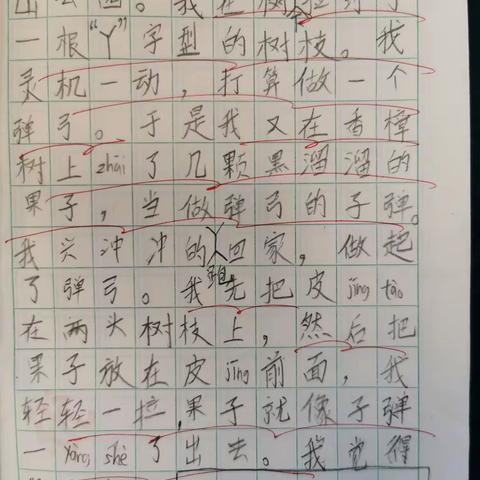 出公园。我在树
一根“丫”字型的树枝。我
灵机一动，打算做一个
弹弓。于是我又在香樟
树上zhāi了几颗黑溜溜的
果子，当做弹弓的子弹。
我兴冲冲的跑回家，做起
了弹弓。我先把皮jīng tào
在两头树枝上，然后把
果子放在皮jīng前面，我
轻轻一拉，果子就像子弹
一yàng shè了出去。我觉得